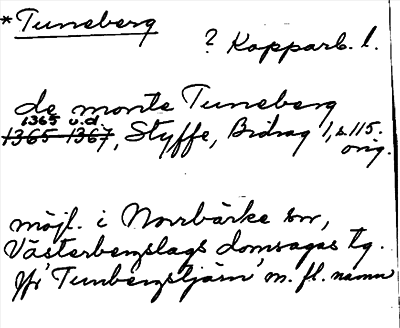 *Tuneberg
? Kopparb. l.
de monte Tuneberg
1365 u.d.
1365-1367, Styffe, Bidrag 1, s. 115.
orig.
möjl. i Norrbärke sn,
Västerbergslags domsagas tg.
Jfr 'Tunbergstjärn' m. fl. namn